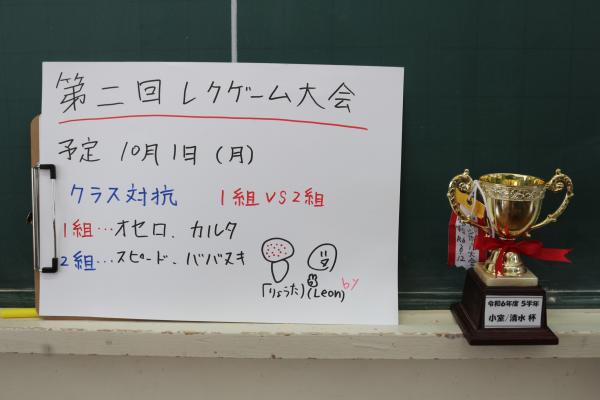 第二回 レクゲーム大会
予定 10月1日(月)
クラス対抗 1組 VS 2組
1組…オセロ、カルタ
2組…スピード、ババヌキ
「りょうた」(Leon) by
令和6年度 5学年
小室/清水 杯